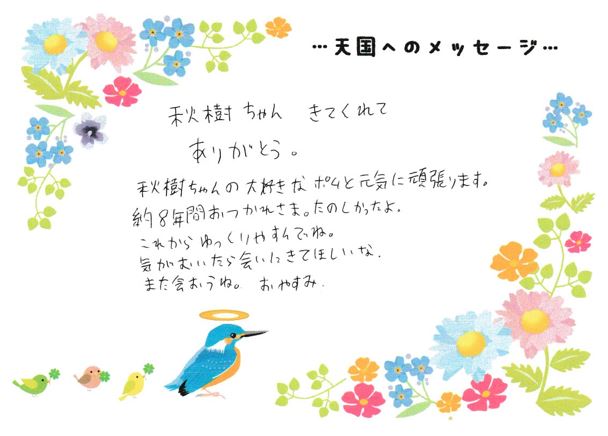 …天国へのメッセージ…
秋樹ちゃん きてくれて
ありがとう。
秋樹ちゃんの大好きなポムと元気に頑張ります。
約8年間おつかれさま。たのしかったよ。
これからゆっくりやすんでね。
気がむいたら会いにきてほしいな。
また会おうね。 おやすみ.